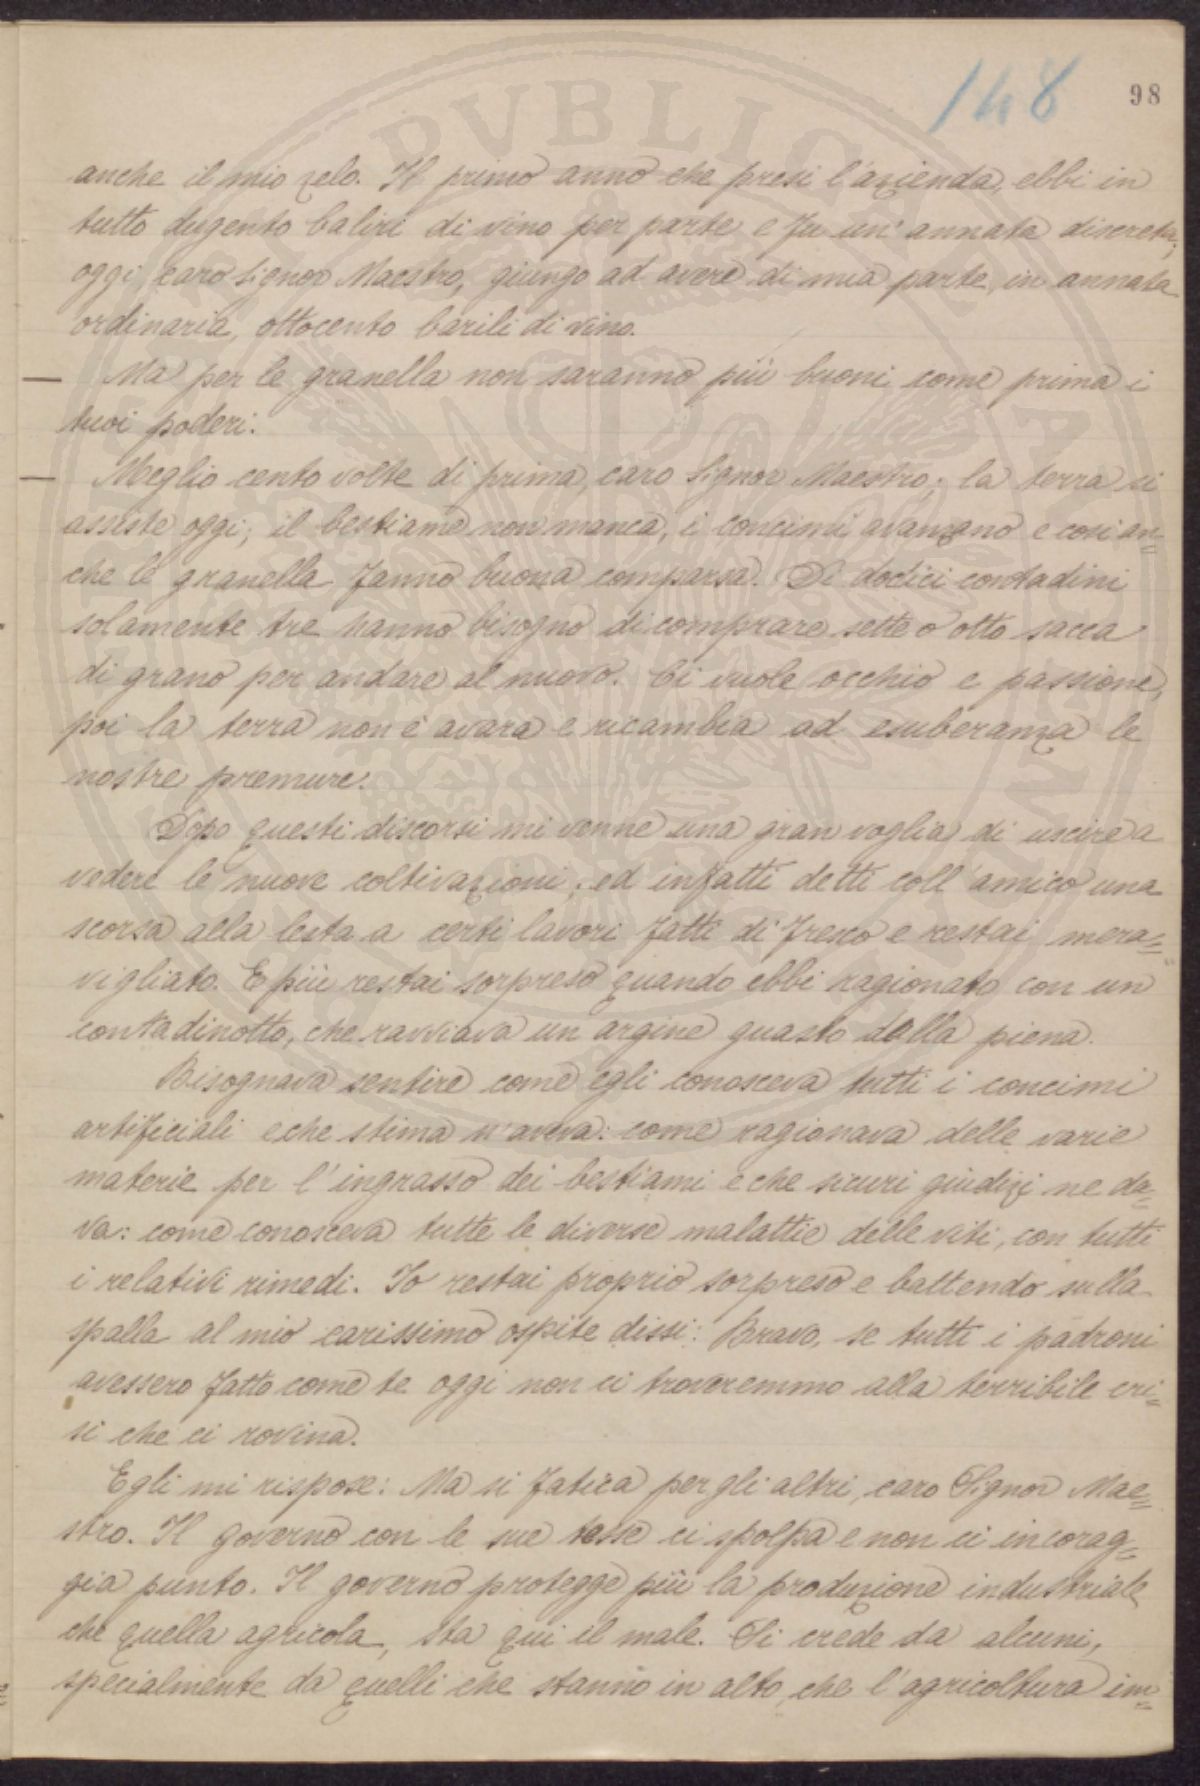 148
98
anche il mio zelo. Il primo anno che presi l'azienda, ebbi in
tutto dugento baliri di vino per parte e fu un' annata discreta;
oggi, caro Signor Maestro, giungo ad avere di mia parte, in annata
ordinaria, ottocento barili di vino.
— Ma per le granella non saranno più buoni come prima i
tuoi poderi.
— Meglio cento volte di prima, caro Signor Maestro; la terra si
assiste oggi; il bestiame non manca, i concimi avanzano e così an=
che le granella fanno buona comparsa. Di dodici contadini
solamente tre hanno bisogno di comprare sette o otto sacca
di grano per andare al nuovo. Ci vuole occhio e passione,
poi la terra non è avara e ricambia ad esuberanza le
nostre premure.
Dopo questi discorsi mi venne una gran voglia di uscire a
vedere le nuove coltivazioni; ed infatti detti coll'amico una
scorsa alla lesta a certi lavori fatti di fresco e restai mera=
vigliato. E più restai sorpreso quando ebbi ragionato con un
contadinotto, che ravviava un argine guasto dalla piena.
Bisognava sentire come egli conosceva tutti i concimi
artificiali e che stima n'aveva: come ragionava delle varie
materie per l'ingrasso dei bestiami e che sicuri giudizi ne da=
va: come conosceva tutte le diverse malattie delle viti, con tutti
i relativi rimedi. Io restai proprio sorpreso e battendo sulla
spalla al mio carissimo ospite dissi: Bravo, se tutti i padroni
avessero fatto come te oggi non ci troveremmo alla terribile cri=
si che ci rovina.
Egli mi rispose: Ma si fatica per gli altri, caro Signor Mae=
stro. Il governo con le sue tasse ci spolpa e non ci incorag=
gia punto. Il governo protegge più la produzione industriale
che quella agricola, sta qui il male. Si crede da alcuni,
specialmente da quelli che stanno in alto, che l'agricoltura im=